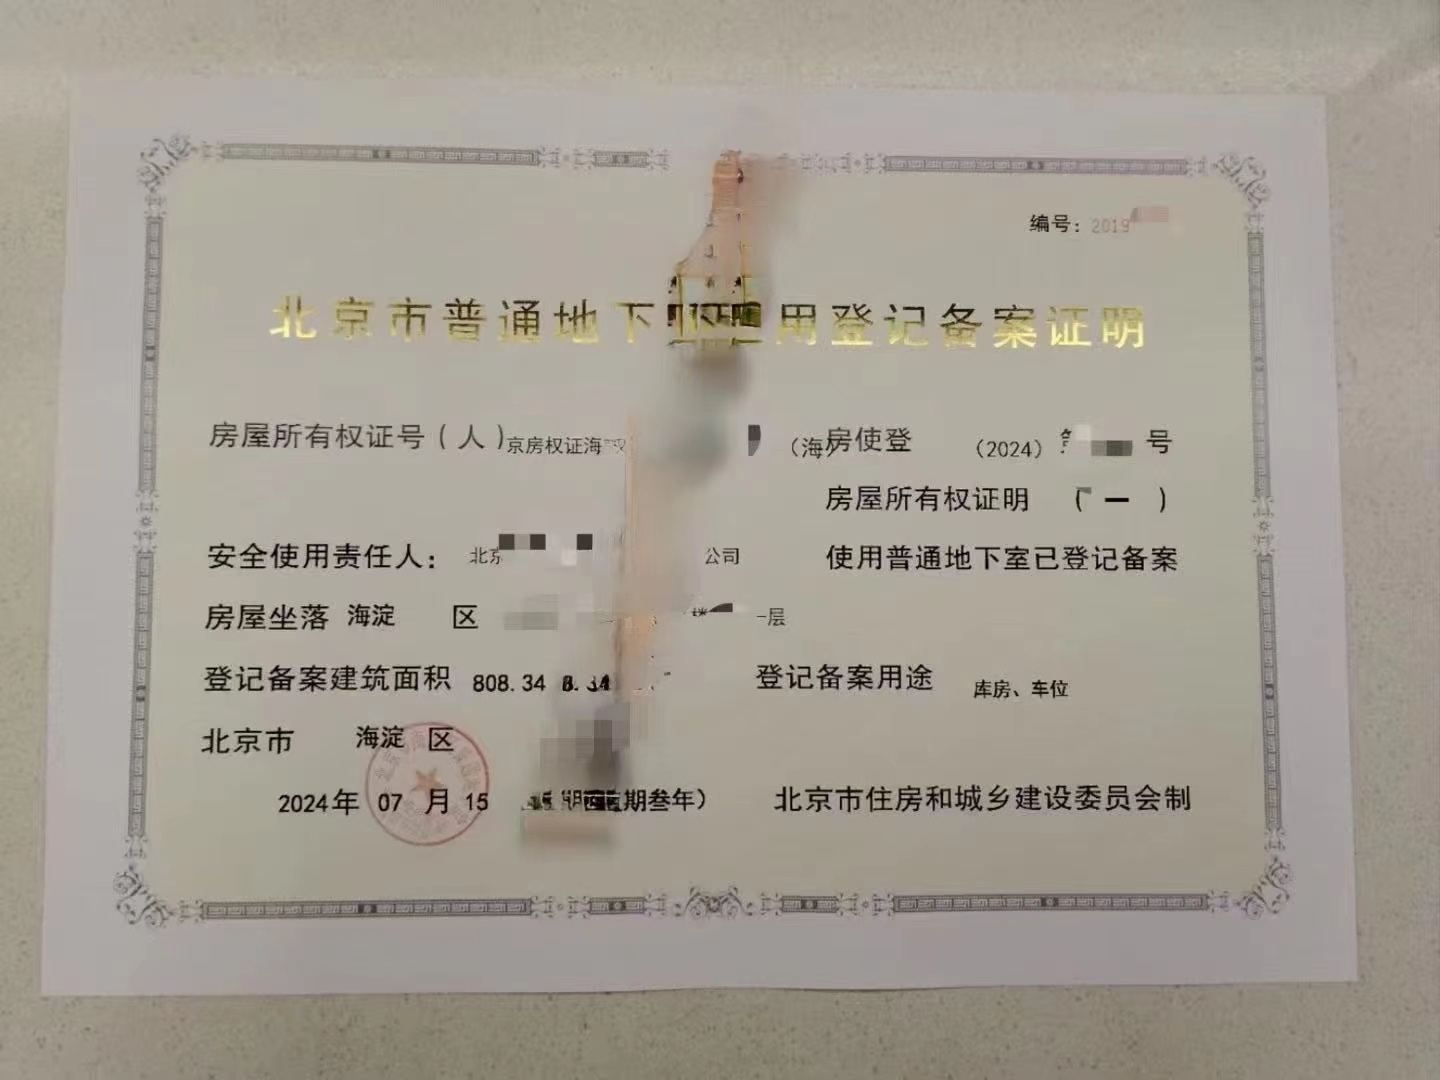 编号：2019
北京市普通地下 用登记备案证明
房屋所有权证号（人） 京房权证海 （海）房使登 （2024） 号
房屋所有权证明 （ 一 ）
安全使用责任人： 北京 公司 使用普通地下室已登记备案
房屋坐落 海淀 区 一层
登记备案建筑面积 808.34 登记备案用途 库房、车位
北京市 海淀 区
2024年 07 月 15 期叁年） 北京市住房和城乡建设委员会制